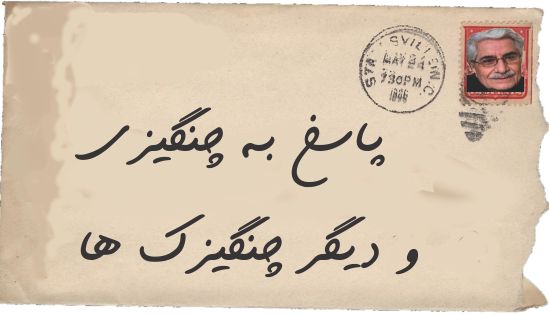 MAY 24
7 30 PM
1896
پاسخ به چنگیزی
و دیگر چنگیزک ها